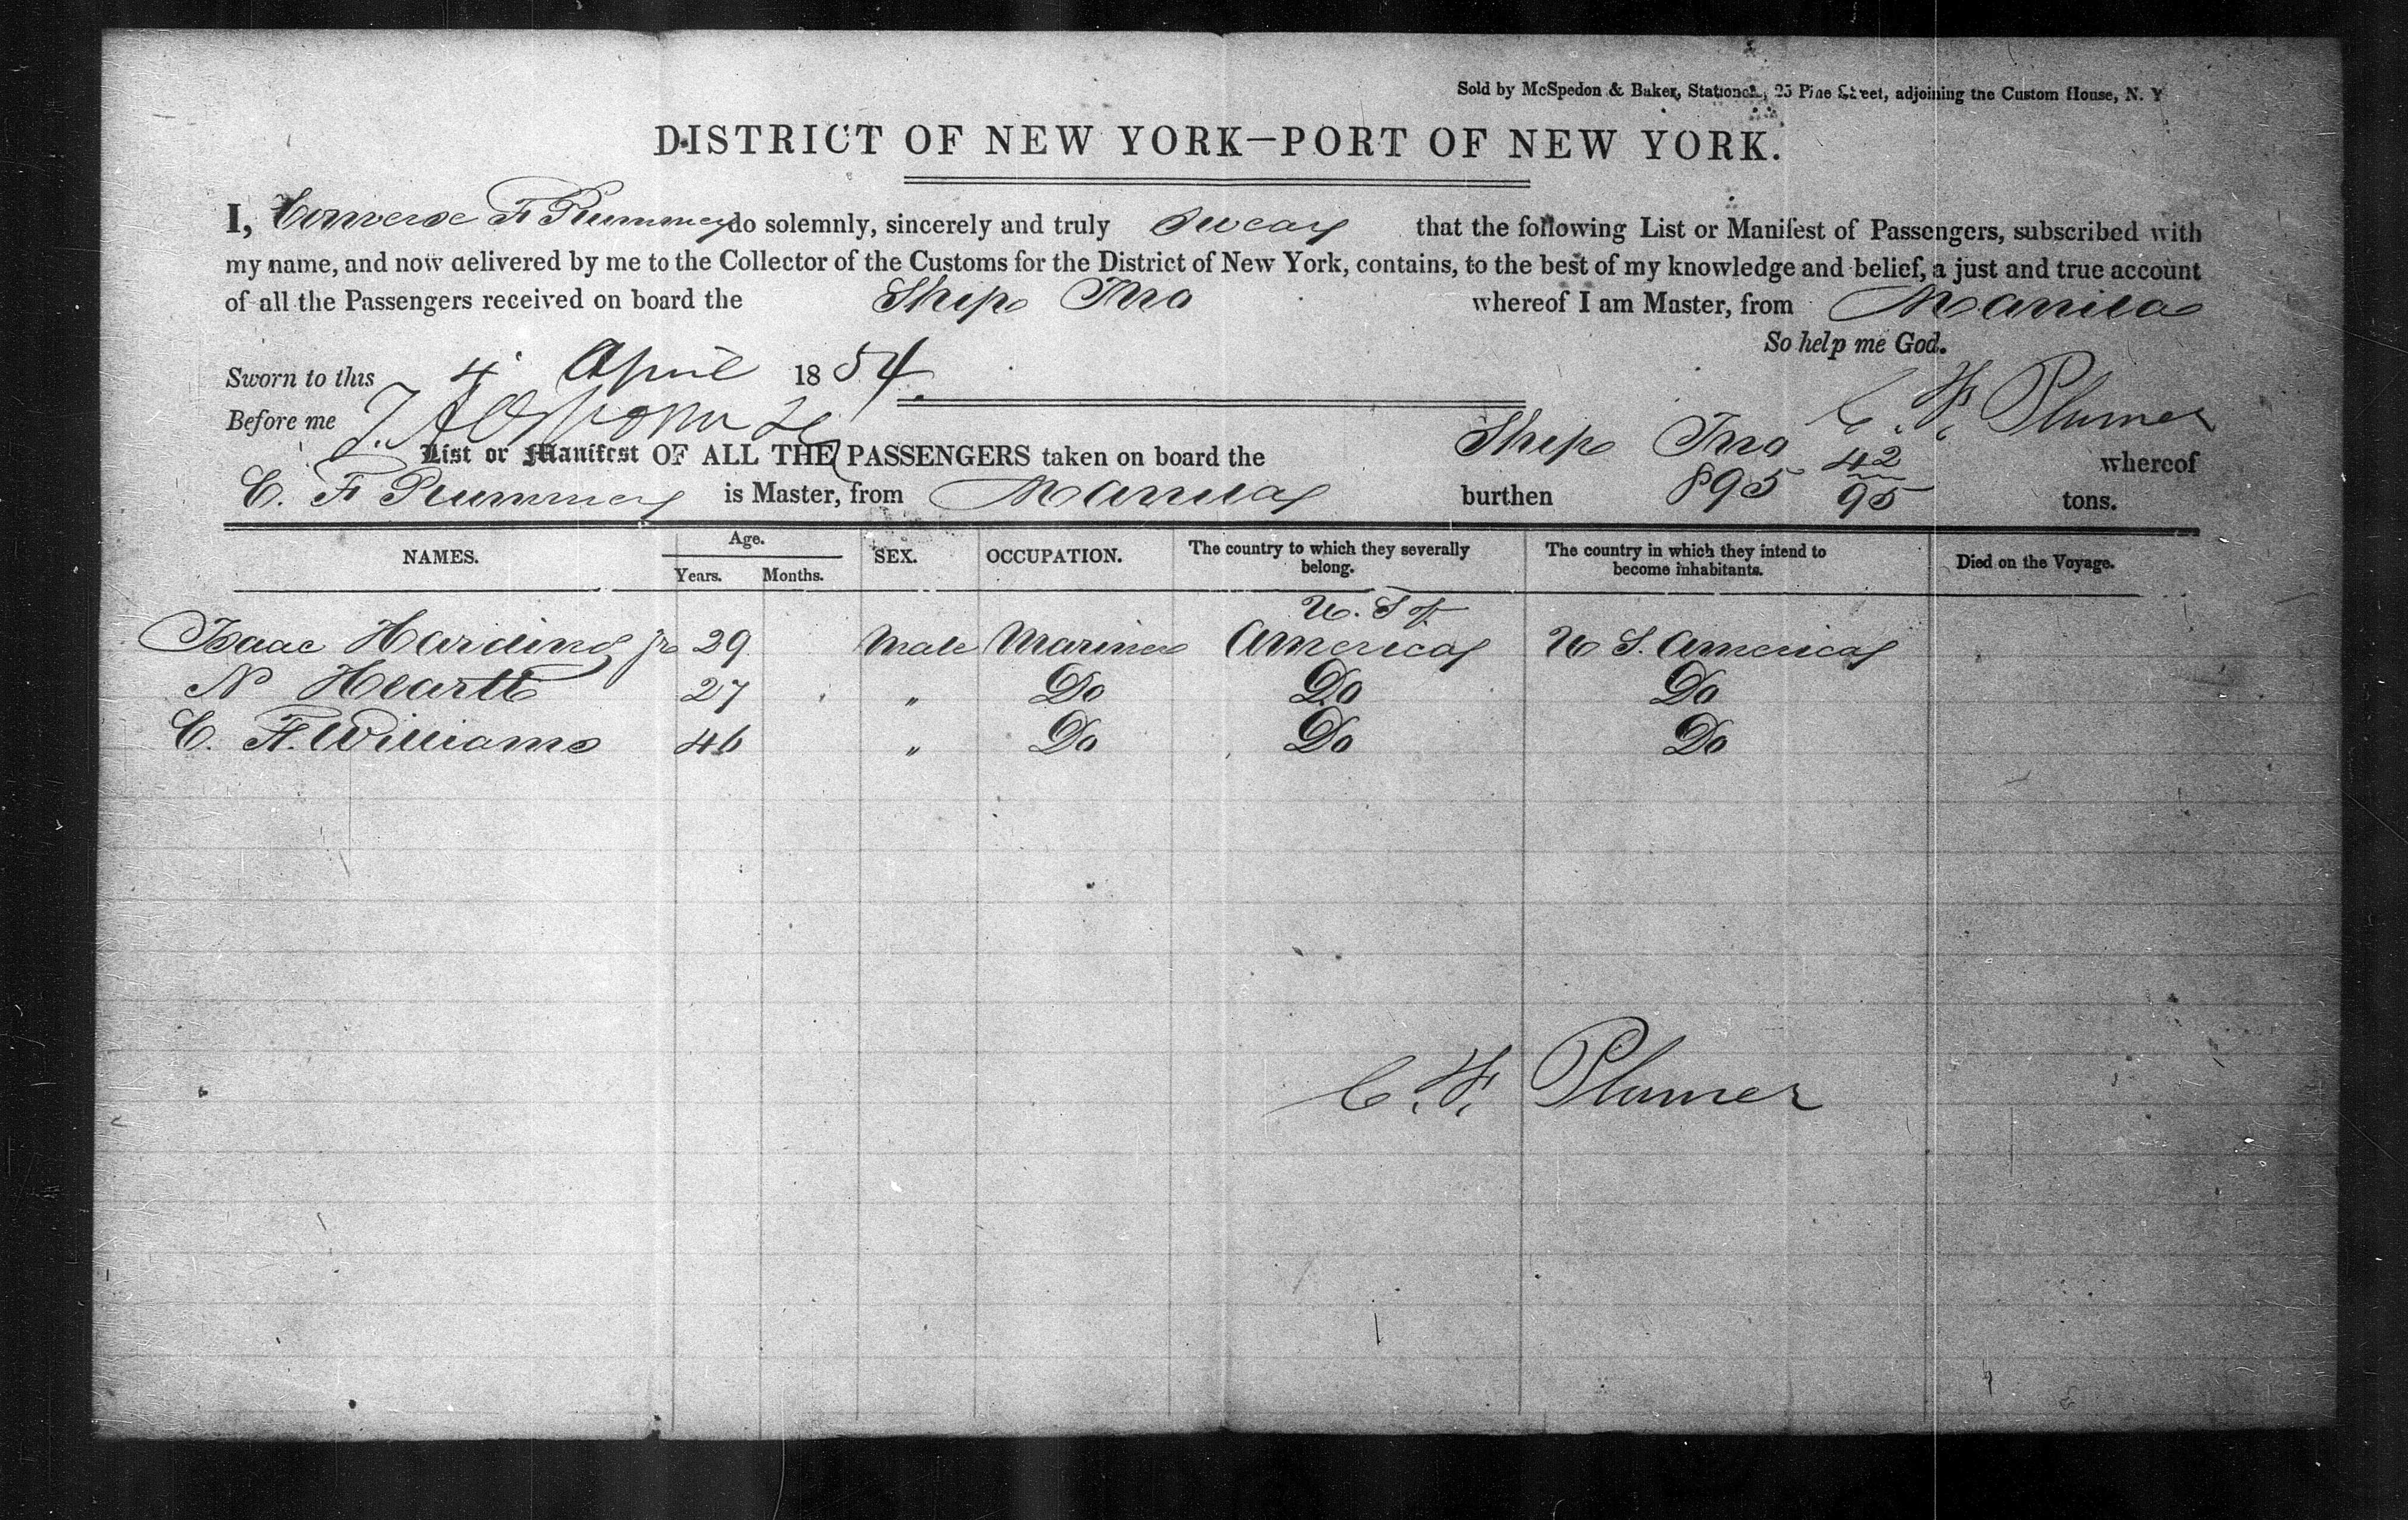 Sold by McSpedon & Baker, Stationers, 25 Pine Street, adjoining the Custom House, N. Y
DISTRICT OF NEW YORK—PORT OF NEW YORK.
I, Converse F Plummer do solemnly, sincerely and truly swear that the following List or Manifest of Passengers, subscribed with
my name, and now delivered by me to the Collector of the Customs for the District of New York, contains, to the best of my knowledge and belief, a just and true account
of all the Passengers received on board the Ship Ino whereof I am Master, from Manila
So help me God.
Sworn to this 4 April 1854.
Before me C. F. Plumer
List or Manifest OF ALL THE PASSENGERS taken on board the Ship Ino whereof
C. F Plummer is Master, from Manila burthen 895 42/95 tons.
NAMES. Age. Years. Months. SEX. OCCUPATION. The country to which they severally belong. The country in which they intend to become inhabitants. Died on the Voyage.
Isaac Harding jr 29 Male Mariner U. S of America U S. America
N Hearth 27 " Do Do Do
C. F. Williams 46 " Do Do Do
C. F. Plumer